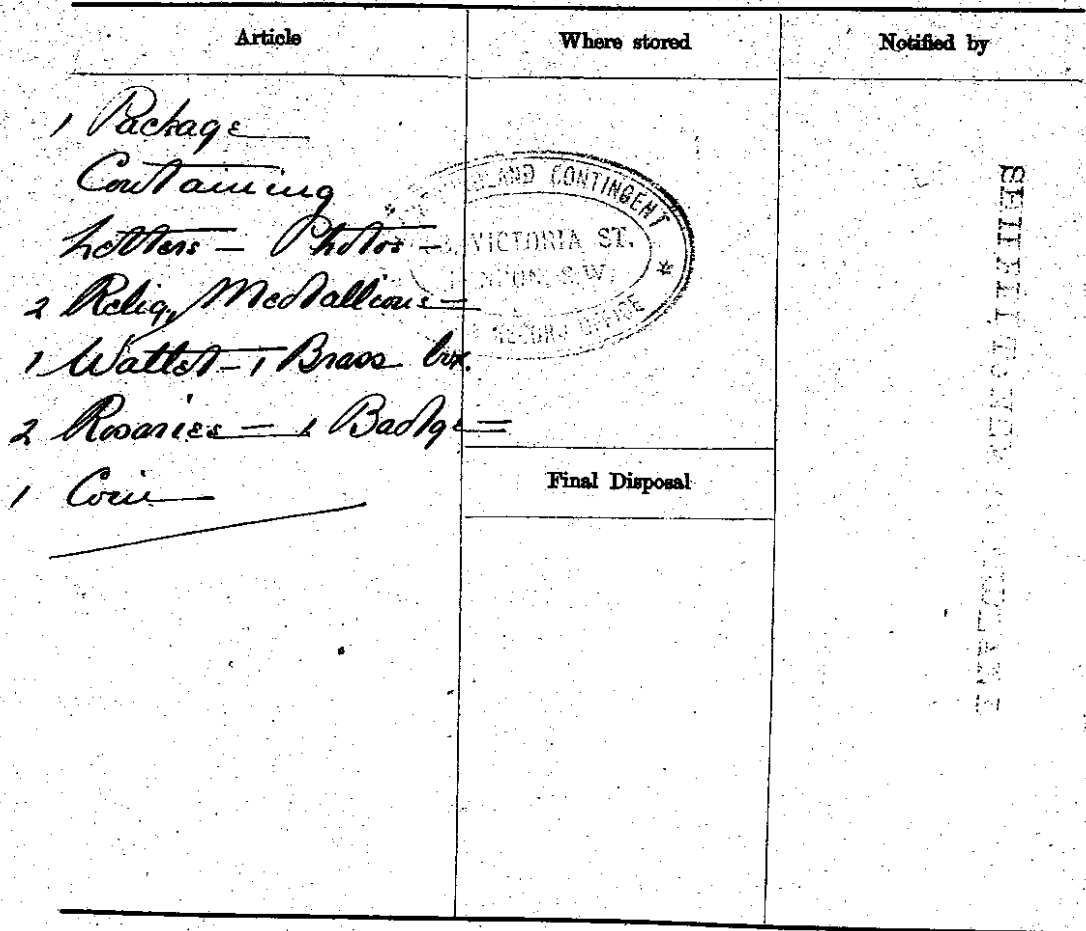 Article
Where stored
Notified by
1 Package
Containing
Letters - Photos -
2 Relig, Medallions -
1 Wallet - 1 Brass box.
2 Rosaries - 1 Badge -
1 Coin
LAND CONTINGENT
VICTORIA ST.
S.W.
RECORD OFFICE
Final Disposal